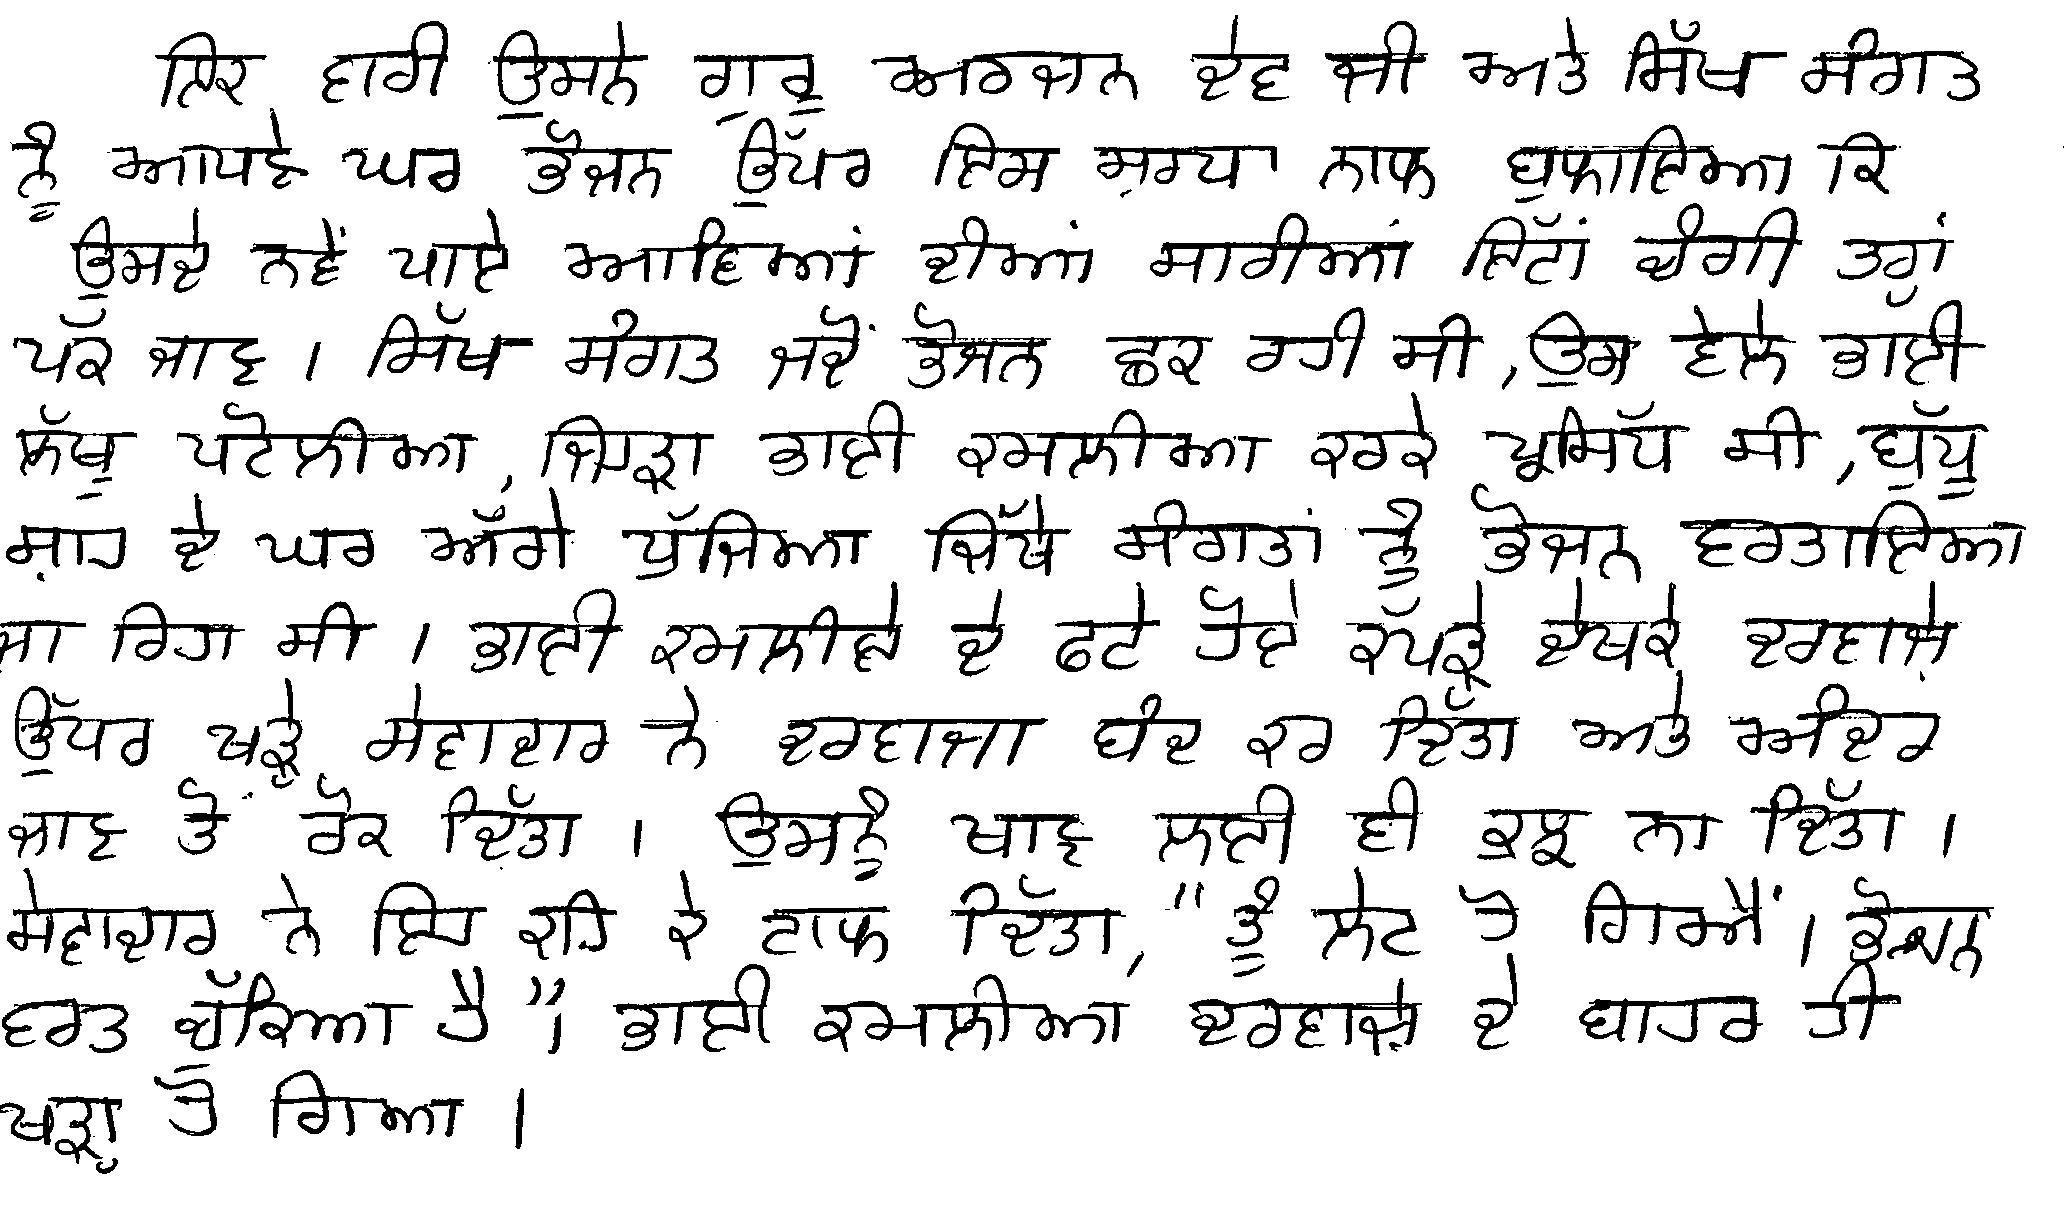 ਇਕ ਵਾਰੀ ਉਸਨੇ ਗੁਰੂ ਅਰਜਨ ਦੇਵ ਜੀ ਅਤੇ ਸਿੱਖ ਸੰਗਤ
ਨੂੰ ਆਪਣੇ ਘਰ ਭੋਜਨ ਉੱਪਰ ਇਸ ਸ਼ਰਧਾ ਨਾਲ ਬੁਲਾਇਆ ਕਿ
ਉਸਦੇ ਨਵੇਂ ਪਾਏ ਆਵਿਆਂ ਦੀਆਂ ਸਾਰੀਆਂ ਇੱਟਾਂ ਚੰਗੀ ਤਰਾਂ
ਪੱਕ ਜਾਣ । ਸਿੱਖ ਸੰਗਤ ਜਦੋਂ ਭੋਜਨ ਛਕ ਰਹੀ ਸੀ , ਉਸ ਵੇਲੇ ਭਾਈ
ਲੱਖੂ ਪਟੋਲੀਆ , ਜਿਹੜਾ ਭਾਈ ਕਮਲੀਆ ਕਰਕੇ ਪ੍ਰਸਿੱਧ ਸੀ , ਬੁੱਧੂ
ਸ਼ਾਹ ਦੇ ਘਰ ਅੱਗੇ ਪੁੱਜਿਆ ਜਿੱਥੇ ਸੰਗਤਾਂ ਨੂੰ ਭੋਜਨ ਵਰਤਾਇਆ
ਜਾ ਰਿਹਾ ਸੀ । ਭਾਈ ਕਮਲੀਏ ਦੇ ਫਟੇ ਹੋਏ ਕੱਪੜੇ ਦੇਖਕੇ ਦਰਵਾਜ਼ੇ
ਉੱਪਰ ਖੜ੍ਹੇ ਸੇਵਾਦਾਰ ਨੇ ਦਰਵਾਜਾ ਬੰਦ ਕਰ ਦਿੱਤਾ ਅਤੇ ਅੰਦਰ
ਜਾਣ ਤੋਂ ਰੋਕ ਦਿੱਤਾ । ਉਸਨੂੰ ਖਾਣ ਲਈ ਵੀ ਕੁਝ ਨਾ ਦਿੱਤਾ ।
ਸੇਵਾਦਾਰ ਨੇ ਇਹ ਕਹਿ ਕੇ ਟਾਲ ਦਿੱਤਾ , " ਤੂੰ ਲੇਟ ਹੋ ਗਿਐਂ । ਭੋਜਨ
ਵਰਤ ਚੁੱਕਿਆ ਹੈ " । ਭਾਈ ਕਮਲੀਆ ਦਰਵਾਜ਼ੇ ਦੇ ਬਾਹਰ ਹੀ
ਖੜ੍ਹਾ ਹੋ ਗਿਆ ।